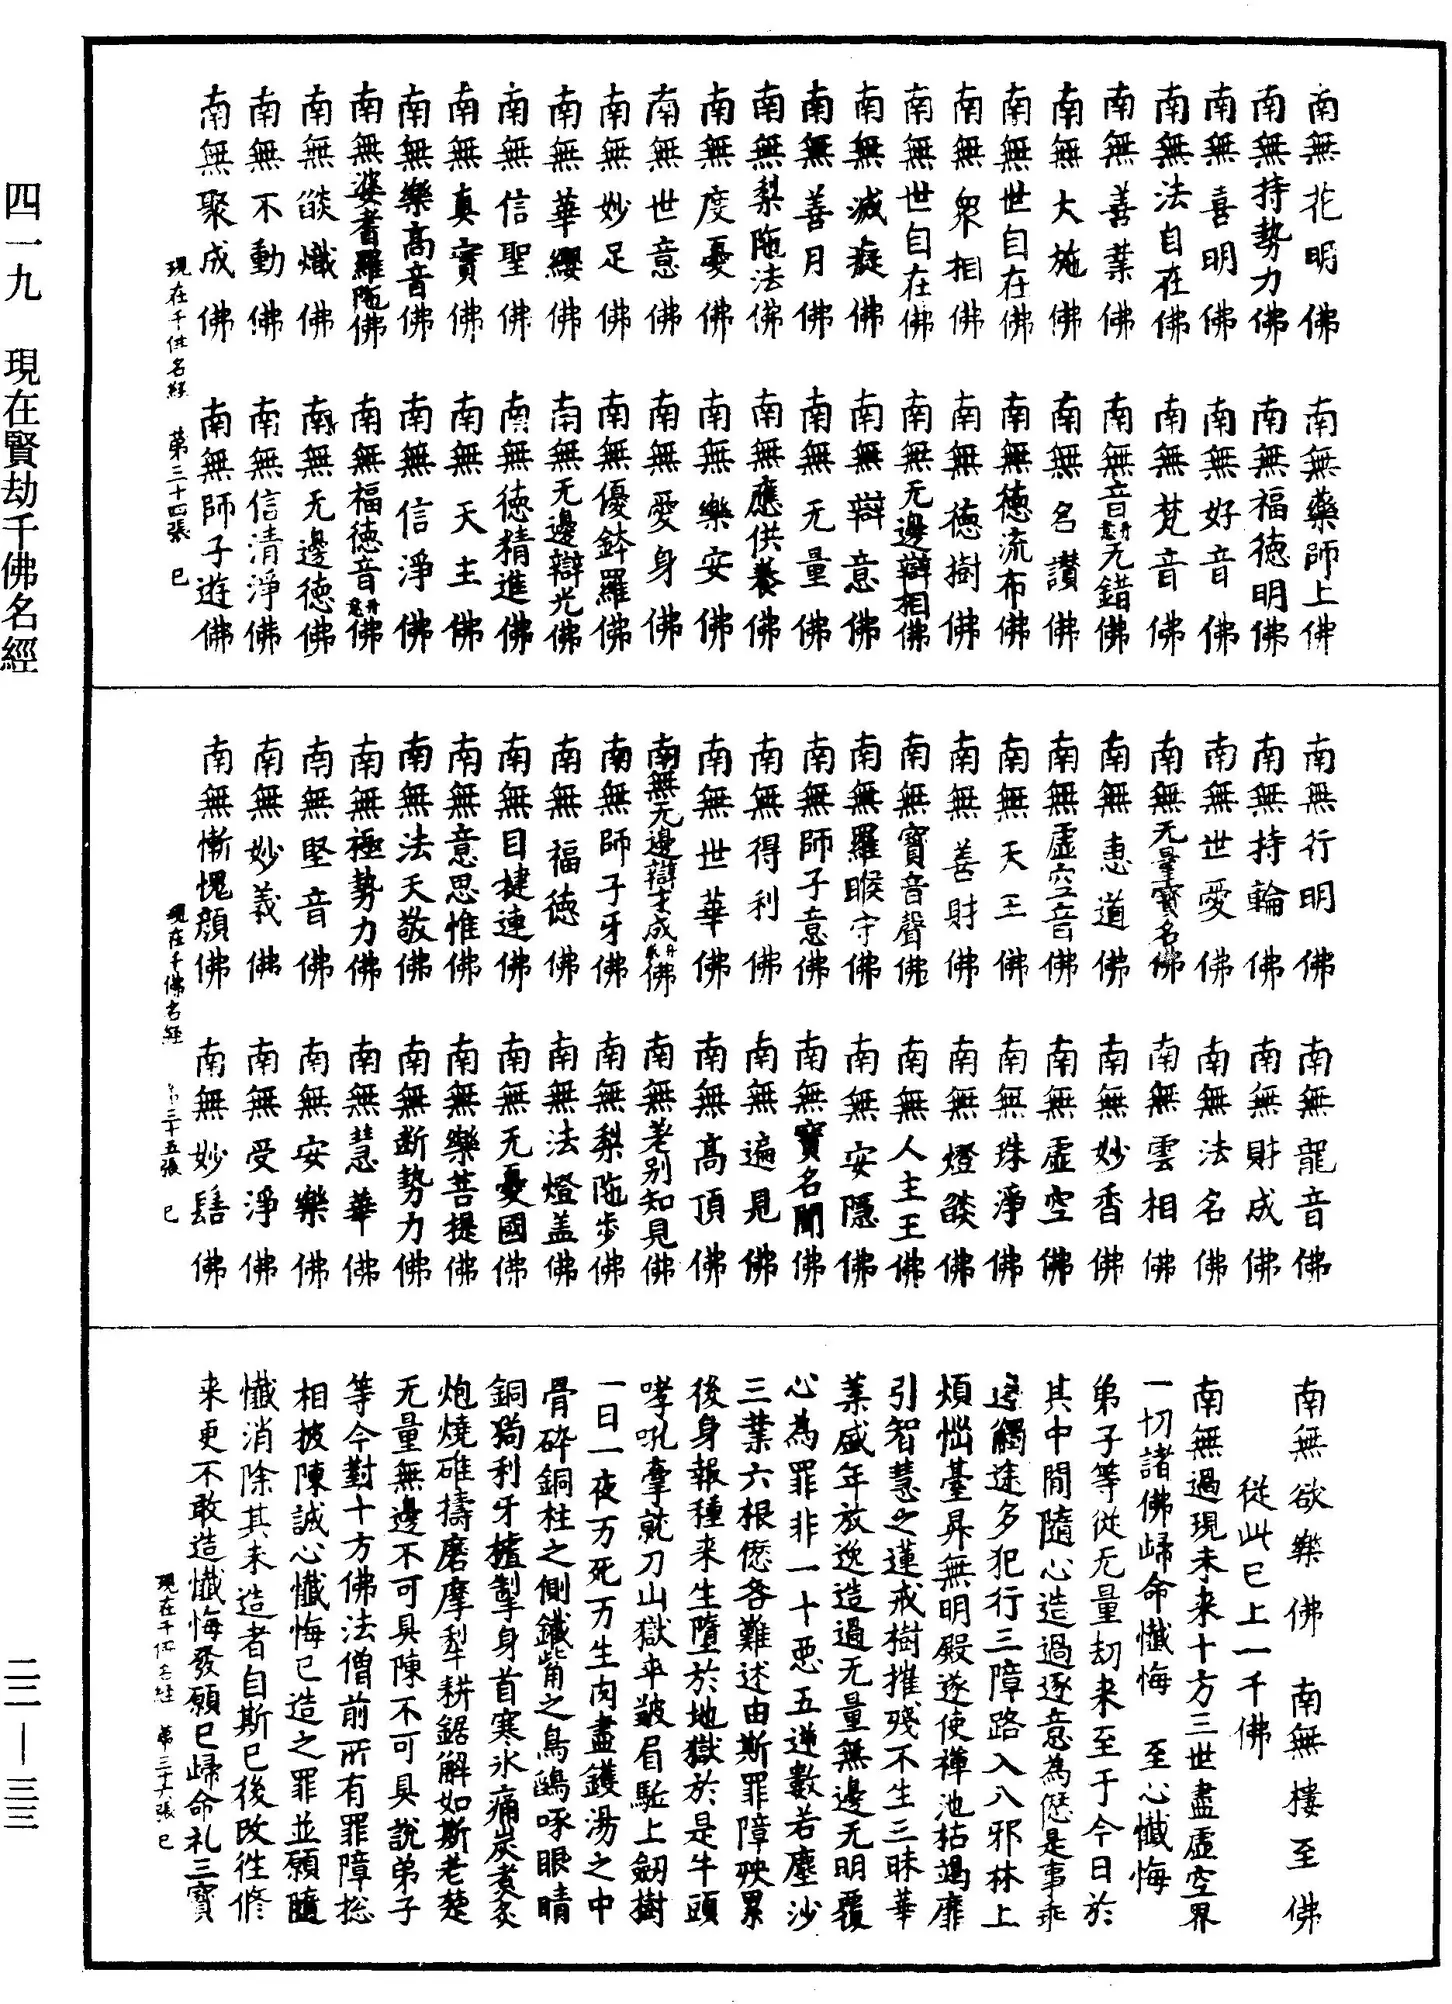 四一九　現在賢劫千佛名經
二二—三三
南無花明佛　南無藥師上佛
南無持勢力佛　南無福德明佛
南無喜明佛　南無好音佛
南無法自在佛　南無梵音佛
南無善業佛　南無音丹意无錯佛
南無大施佛　南無名讃佛
南無世自在佛　南無德流布佛
南無衆相佛　南無德樹佛
南無世自在佛　南無无邊辯相佛
南無滅癡佛　南無辯意佛
南無善月佛　南無无量佛
南無梨陁法佛　南無應供養佛
南無度憂佛　南無樂安佛
南無世意佛　南無愛身佛
南無妙足佛　南無優鉢羅佛
南無華纓佛　南無无邊辯光佛
南無信聖佛　南無德精進佛
南無真實佛　南無天主佛
南無樂高音佛　南無信淨佛
南無婆耆羅陁佛　南無福德音丹意佛
南無燄熾佛　南無无邊德佛
南無不動佛　南無信清淨佛
南無聚成佛　南無師子遊佛
現在千佛名經　第三十四張　巳
南無行明佛　南無龍音佛
南無持輪佛　南無財成佛
南無世愛佛　南無法名佛
南無无量寶名佛　南無雲相佛
南無惠道佛　南無妙香佛
南無虛空音佛　南無虛空佛
南無天王佛　南無珠淨佛
南無善財佛　南無燈燄佛
南無寶音聲佛　南無人主王佛
南無羅睺守佛　南無安隱佛
南無師子意佛　南無寶名聞佛
南無得利佛　南無遍見佛
南無世華佛　南無高頂佛
南無无邊辯才成丹佛　南無差別知見佛
南無師子牙佛　南無梨陁步佛
南無福德佛　南無法燈盖佛
南無目揵連佛　南無无憂國佛
南無意思惟佛　南無樂菩提佛
南無法天敬佛　南無斷勢力佛
南無極勢力佛　南無慧華佛
南無堅音佛　南無安樂佛
南無妙義佛　南無受淨佛
南無慚愧顔佛　南無妙髻佛
現在千佛名經　第三十五張　巳
南無欲樂佛　南無樓至佛
從此巳上一千佛
南無過現未来十方三世盡虛空界
一切諸佛歸命懺悔　至心懺悔
弟子等從无量劫来至于今日於
其中間隨心造過逐意為愆是事乖
違觸途多犯行三障路入八邪林上
煩惱臺昇無明殿遂使禪池枯竭靡
引智慧之蓮戒樹摧殘不生三昧華
業盛年放逸造過无量無邊无明覆
心為罪非一十惡五逆數若塵沙
三業六根愆咎難述由斯罪障殃累
後身報種来生墮於地獄於是牛頭
哮吼牽就刀山獄卒皺眉駈上劒樹
一日一夜万死万生肉盡鑊湯之中
骨碎銅柱之側鐵觜之鳥鵄啄眼睛
銅狗利牙摣掣身首寒氷痛炭煮炙
炮燒碓擣磨摩犁耕鋸解如斯老楚
无量無邊不可具陳不可具說弟子
等今對十方佛法僧前所有罪障捴
相披陳誠心懺悔已造之罪並願隨
懺消除其未造者自斯已後改往修
来更不敢造懺悔發願已歸命礼三寶
現在千佛名經　第三十六張　巳